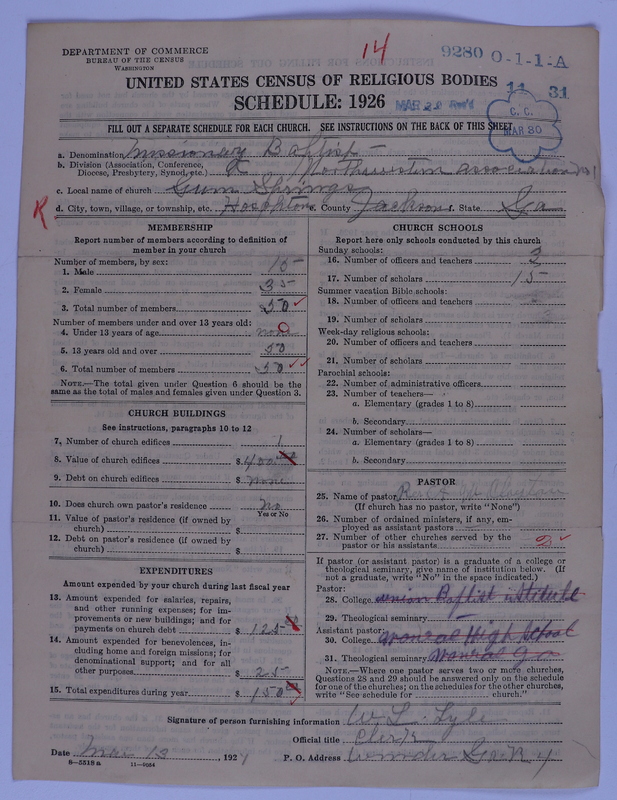 DEPARTMENT OF COMMERCE
BUREAU OF THE CENSUS
WASHINGTON
14
9280 0-1-1-A
UNITED STATES CENSUS OF RELIGIOUS BODIES
11 31
SCHEDULE: 1926
MAR 22
C. C.
MAR 30
FILL OUT A SEPARATE SCHEDULE FOR EACH CHURCH. SEE INSTRUCTIONS ON THE BACK OF THIS SHEET
a. Denomination Missionary Baptist
b. Division (Association, Conference,
Diocese, Presbytery, Synod, etc.) Northwestern association
c. Local name of church Gum Springs
R
d. City, town, village, or township, etc. Hoschton e. County Jackson f. State Ga
MEMBERSHIP
Report number of members according to definition of
member in your church
Number of members, by sex:
1. Male 15
2. Female 35
3. Total number of members 50
Number of members under and over 13 years old:
4. Under 13 years of age none 0
5. 13 years old and over 50
6. Total number of members 50
NOTE.—The total given under Question 6 should be
same as the total of males and females given under Question 3.
CHURCH BUILDINGS
See instructions, paragraphs 10 to 12
7. Number of church edifices 1
8. Value of church edifices $400
9. Debt on church edifices $ None
10. Does church own pastor's residence No
Yes or No
11. Value of pastor's residence (if owned by
church) $
12. Debt on pastor's residence (if owned by
church) $
EXPENDITURES
Amount expended by your church during last fiscal year
13. Amount expended for salaries, repairs,
and other running expenses; for im-
provements or new buildings; and for
payments on church debt $ 125
14. Amount expended for benevolences, in-
cluding home and foreign missions; for
denominational support; and for all
other purposes $ 25
15. Total expenditures during year $ 150
CHURCH SCHOOLS
Report here only schools conducted by this church
Sunday schools:
16. Number of officers and teachers 3
17. Number of scholars 15
Summer vacation Bible schools:
18. Number of officers and teachers
19. Number of scholars
Week-day religious schools:
20. Number of officers and teachers
21. Number of scholars
Parochial schools:
22. Number of administrative officers
23. Number of teachers—
a. Elementary (grades 1 to 8)
b. Secondary
24. Number of scholars—
a. Elementary (grades 1 to 8)
b. Secondary
PASTOR
25. Name of pastor Rev.
(If church has no pastor, write "None")
26. Number of ordained ministers, if any, em-
ployed as assistant pastors
27. Number of other churches served by the
pastor or his assistants 2
If pastor (or assistant pastor) is a graduate of a college or
theological seminary, give name of institution below. (If
not a graduate, write "No" in the space indicated.)
Pastor:
28. College union Baptist institute
29. Theological seminary
Assistant pastor:
30. College High School
31. Theological seminary
NOTE.—Where one pastor serves two or more churches,
Questions 28 and 29 should be answered only on the schedule
for one of the churches; on the schedules for the other churches,
write "See schedule for church."
Signature of person furnishing information W. L. Lyle
Official title Clerk
Date Mar 10 1927 P. O. Address Winder Ga R 4
8—5518a 11—9054